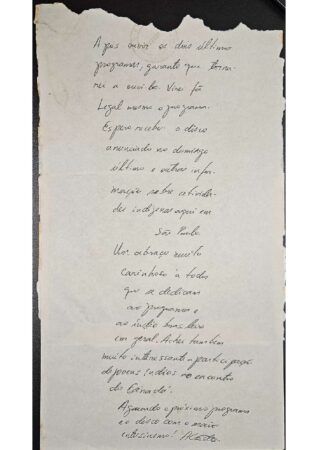 Apos ouvir os dois último
programas, garanto que torna-
rei a ouvi-lo. Virei fã
Legal mesmo o programa.
Espero receber o disco
anunciado no domingo
último e outras infor-
mação sobre ativida-
des indígenas aqui em
São Paulo
Um abraço muito
carinhoso à todos
que se dedicam
ao programa e
ao índio brasileiro
em geral. Achei também
muito interessante a participação
de poeus índios no encontro
do Canadá.
Aguardo o próximo programa
e o disco com o maior
entusiasmo!